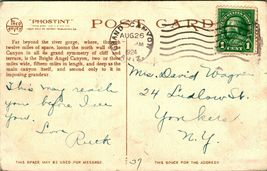 PHOSTINT
POST CARD
AUG 26
M
1924
ARIZ.
1 CENT 1
Far beyond the river gorge, where, through
twelve miles of space, looms the north wall of the
Canyon in all its grand symmetry of cliff and
terrace, is the Bright Angel Canyon, two or three
miles wide, fifteen miles in length, and deep as the
main canyon itself, and second only to it in
imposing grandeur.
This may reach
you before I see
you.
Love
Ruth
Mrs. David Wagner
24 Ludlow St.
Yonkers
N.Y.
THIS SPACE MAY BE USED FOR MESSAGE
THIS SPACE FOR THE ADDRESS